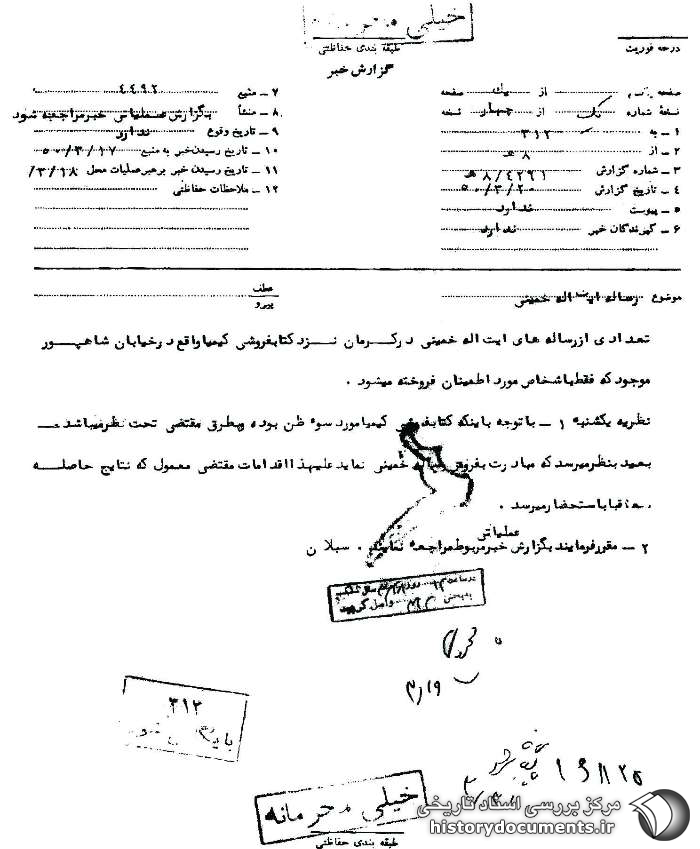 خیلی محرمانه
درجه فوریت
طبقه بندی حفاظتی
گزارش خبر
صفحه یک از یک صفحه
نسخهٔ شماره یک از چهار نسخه
۱ – به ۳۱۲
۲ – از ۸ ه
۳ – شماره گزارش ۸/۴۲۹۱ ه
۴ – تاریخ گزارش ۵۰/۳/۲۰
۵ – پیوست ندارد
۶ – گیرندگان خبر ندارد
۷ – منبع ۴۴۹۲
۸ – منشأ بگزارش عملیاتی خبر مراجعه شود
۹ – تاریخ وقوع ندارد
۱۰ – تاریخ رسیدن خبر به منبع ۵۰/۳/۱۷
۱۱ – تاریخ رسیدن خبر برهبر عملیات محل /۳/۱۸
۱۲ – ملاحظات حفاظتی
موضوع رساله ایت اله خمینی
عطف
پیرو
تعدادی از رساله های ایت اله خمینی در کرمان نزد کتابفروشی کیمیا واقع در خیابان شاهپور
موجود که فقط باشخاص مورد اطمینان فروخته میشود .
نظریه یکشنبه ۱ – با توجه باینکه کتابفروشی کیمیا مورد سوء ظن بوده و بطرق مقتضی تحت نظر میباشد
بعید بنظر میرسد که مبادرت بفروش رساله خمینی نماید علیهذا اقدامات مقتضی معمول که نتایج حاصله
متعاقبا باستحضار میرسد .
۲ – مقرر فرمایند بگزارش خبر مربوطه مراجعه نمایند . سبلان
عملیاتی
در ساعت
واصل گردید
۳/۱۹
۳۱۲
بایگانی شود
۱۶۸۲۵
خیلی محرمانه
طبقه بندی حفاظتی
مرکز بررسی اسناد تاریخی
historydocuments.ir